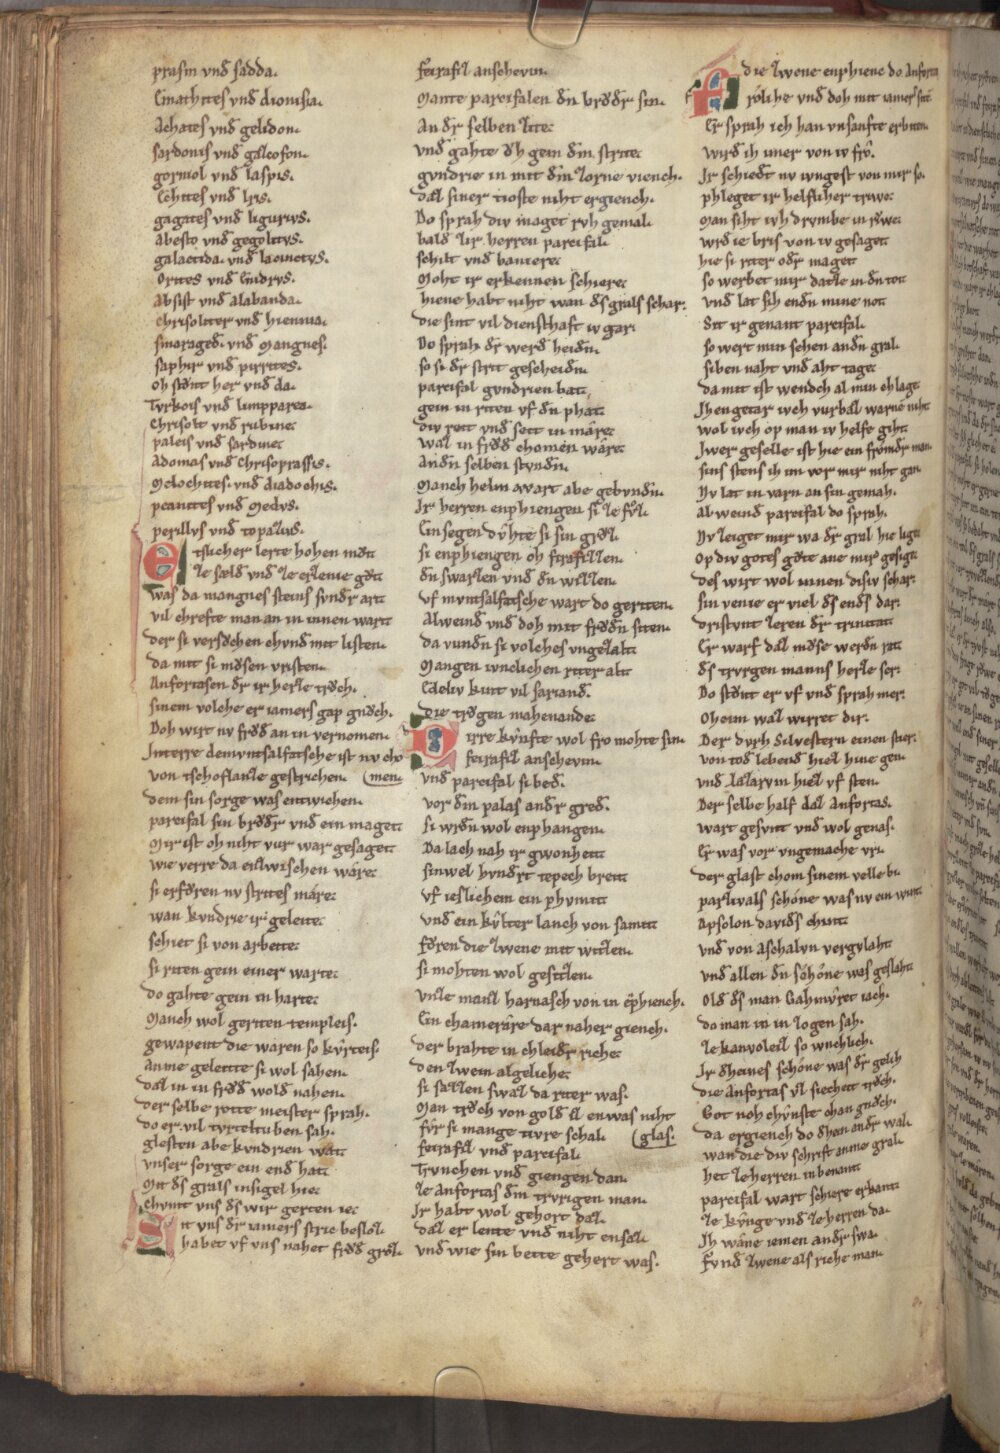 prasin vnd sadda.
Emathites vnd dionisia.
Achates vnd gelidon.
sardonis vnd galcofon.
gorniol vnd Iaspis.
Echites vnd Iris.
gagates vnd ligurius.
Abesto vnd gegolitus.
galactida. vnd Iacinctus.
Orites vnd Enidrus.
Absist vnd alabanda.
Chrisolter vnd hiennia.
smaraged. vnd Magnes.
saphir vnd pirrites.
oh stont her vnd da.
Turkois vnd lipparea.
Chrisolt vnd rubine.
paleis vnd sardine.
Adamas vnd Chrisoprassis.
Melochites. vnd diadochis.
peanites vnd Medus.
perillus vnd topazius.
Etslicher lerte hohen mot
ze sæld vnd ze erzenie got
was da mangnes steins svndr art
vil chrefte man an in innen wart
der si versochen chvnd mit listen.
da mit si mosen vristen.
Anfortasen dr ir herze troch.
sinem volche er iamers gap gnoch.
Doh wirt nv frod an in vernomen.
Interre demvntsalfatsche ist nv cho
von tschoflanze gestrichen. (men.
dem sin sorge was entwichen.
parcifal sin brodr vnd ein maget
Mir ist oh niht vur war gesaget
wie verre da enzwischen wære.
si erforen nv strites mære.
wan kvndrie ir geleite.
schiet si von arbeite.
si riten gein einer warte.
do gahte gein in harte.
Manch wol geriten templeis.
gewapent die waren so kvrteis.
Anme geleitte si wol sahen.
daz in in frod wold nahen.
der selbe rotte meister sprah.
do er vil turteltuben sah.
glesten abe kvndrien wat
vnser sorge ein end hat
Mit ds grals insigel hie.
chvmt vns ds wir gerten ie.
Sit vns dr iamers stric besloz.
habet vf vns nahet frod groz.
feirafiz anschevin.
Mante parcifalen dn brodr sin.
An dr selben zite.
vnd gahte dh gein dm strite.
gvndrie in mit dm zorne vienc.
daz siner tioste niht ergiench.
Do sprah div maget rvh gemal.
bald zir herren parcifal.
schilt vnd baniere.
Moht ir erkennen schiere.
hiene habt niht wan ds grals schar.
die sint vil diensthaft iv gar
Do sprah dr werd heidn.
so si dr strit gescheidn.
parcifal gvndrien bat
gein in riten vf dn phat.
div reit vnd seit in mære.
waz in frod chomen wære.
Andn selben stvndn.
Manch helm wart abe gebvndn.
Ir herren enphiengen si ze foz.
Ein segen dvhte si sin groz.
si enphiengen oh feirafizen.
dn swarzen vnd dn wizen.
vf mvntsalfatsche wart do geriten.
Alweind vnd doh mit frodn siten.
da vundn si volches vngezalt
Mangen wnclichen riter alt
Edeliv kint vil sariand.
die trvgen mahenande
Dirre kvnfte wol fro mohte sin.
feirafiz anschevin.
vnd parcifal si bed.
vor dm palas andr gred.
si wrdn wol enphangen.
Da lach nah ir gwonheit
sinwel hvndrt tepech breit
vf ieslichem ein phvmit
vnd ein kvlter lanch von samit
foren die zwene mit witzen.
si mohten wol gesitzen.
vnze manz harnasch von in ephiench.
Ein chamerære dar naher giench.
der brahte in chleidr riche
den zwein algeliche.
si sazzen swaz da riter was.
Man troch von gold ez enwas niht
fvr si mange tivre schal. (glas.
feirafiz vnd parcifal.
Trvnchen vnd giengen dan.
ze Anfortas dm trvrigen man.
Ir habt wol gehort daz.
daz er lente vnd niht ensaz.
vnd wie sin bette gehert was.
Die zwene enphiene do Anforta
frolihe vnd doh mit iamer sit
Er sprah ich han vnsanfte erbiten
wird ih imer von iv fro.
Ir schiedt nv iungest von mir so.
phleget ir helflicher triwe.
man siht ivh drvmbe in riwe.
wrd ie bris von iv gesaget
hie si riter odr maget
so werbet mir datze in dn tot
vnd lat sih endn mine not.
Sit ir genant parcifal.
so wert min sehen andn gral.
siben naht vnd aht tage.
da mit ist wendch al min chlage.
Ihengetar iwch vurbaz warne niht
wol iwch op man iv helfe giht.
Iwer geselle ist hie ein fromdr man.
sins stens ih im vor mir niht gan.
Nv lat in varn an sin gemah.
Al weind parcifal do sprah.
Nv zeiget mir wa dr gral hie lige
Op div gotes gote ane mir gesiget
des wirt wol innen disiv schar.
sin venie er viel ds ends dar.
dristvnt zeren dr trinitat
Er warf daz mose werdn rat
ds trvrgen manns herze ser.
Do stont er vf vnd sprah mer.
Oheim waz wirret dir.
Der dvrh Silvestern einen stier.
von tod lebend hiez hine gen.
vnd Lazarvm hiez vf sten.
Der selbe half daz Anfortas.
wart gesvnt vnd wol genas.
Er was vor vngemache vri.
der glast chom sinem velle bi.
parzivals schone was nv ein wint
Apsolon davids chint.
vnd von Aschalvn vergvlaht
vnd allen dn schone was geslaht.
Old ds man Gahmvret iach.
do man in in zogen sah.
ze kanvoleiz so wnchlich.
Ir dheines schone was dr gelich
die Anfortas vz siecheit troch.
Got noh chvnste chan gnoch.
da ergiench do dhein andr wal.
wan die div schrift anme gral.
het ze herren in benant
parcifal wart schiere erkant
ze kvnge vnd ze herren da.
Ih wæne iemen andr swa.
fvnd zwene als riche man.